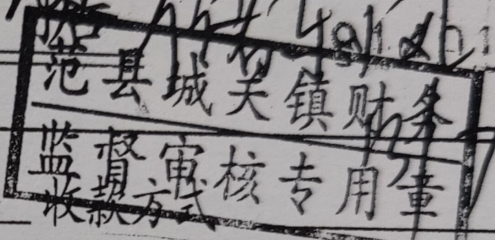 范县城关镇财务
监督审核专用章
收款方式